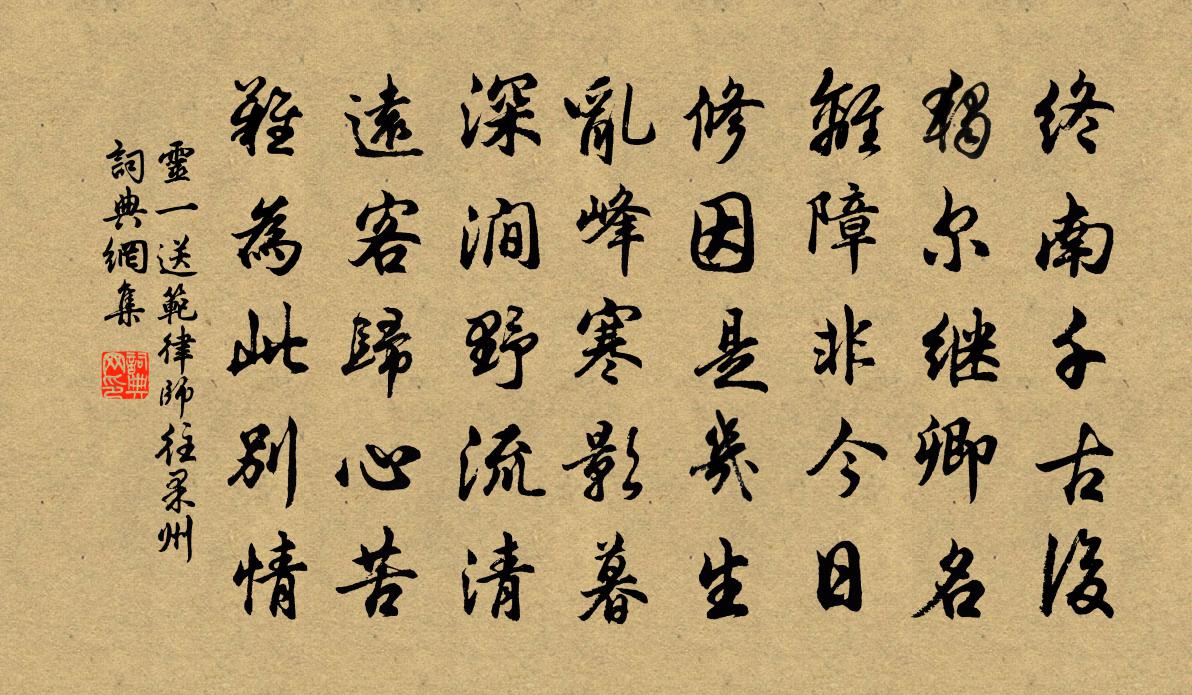 終南千古後
獨尔继卿名
離障非今日
修因是幾生
亂峰寒影暮
深澗野流清
遠客歸心苦
難為此別情
靈一送範律師往果州
詞典網集
詞典
网印